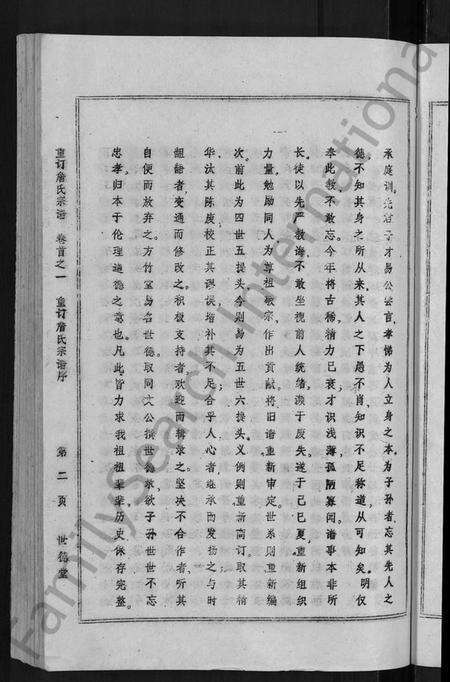 承庭训先君子才易公尝言孝悌为人立身之本为子孙者忘其先人之
德不知其身之所从来其人之下愚不肖知识不足称道从可知矣明仅
奉此教不敢忘今年将古稀精力已衰才识浅薄孤陋寡闻谱事本非所
长徒以先严教诲不敢坐视前人统绪濒于废失遂于己巳夏重新组织
力量勉励同人为尊祖敬宗作出贡献将旧谱重新审定世系则重新编
次前此为四世五提头今则易为五世六提头义例则重新商订取其精
华汰其陈废校正其误误培补其不足合乎人心者继承而发扬之与时
龃龉者变通而修改之积极支持者欢迎而辑录之坚决不合作者听其
自便而放弃之方竹堂易名世德取同文公撰世为求欲子孙世世不忘
忠孝归本于伦理道德之意也凡此皆力求我祖祖辈辈历史保存完整
重订詹氏宗谱 卷首之一 重订詹氏宗谱序 第二页 世德堂
FamilySearch International